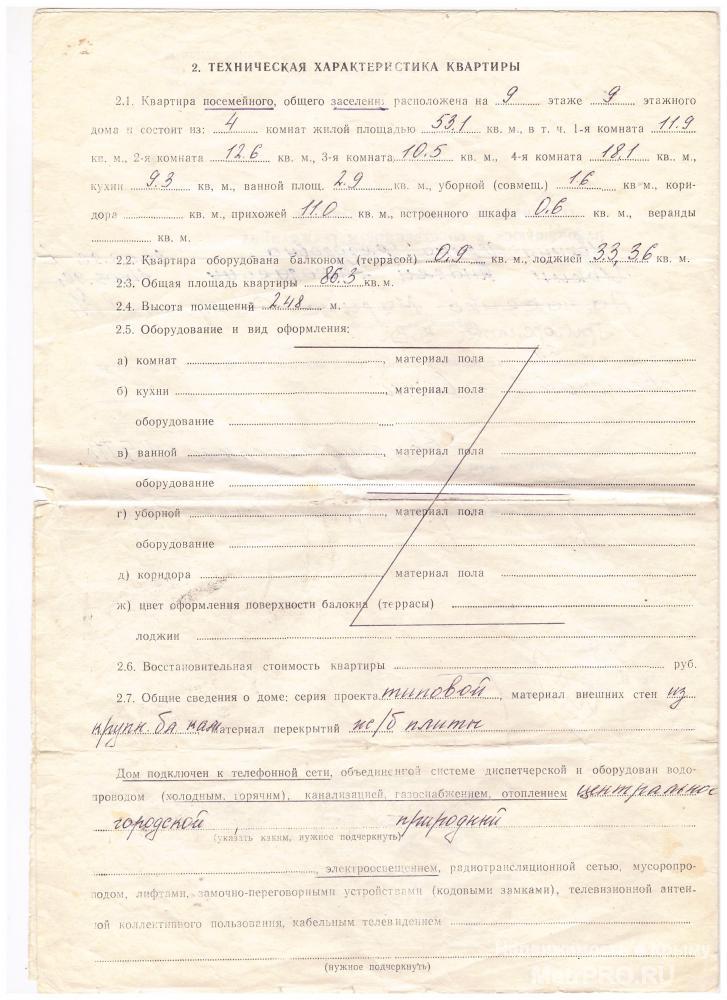 2. ТЕХНИЧЕСКАЯ ХАРАКТЕРИСТИКА КВАРТИРЫ
2.1. Квартира посемейного, общего заселения расположена на 9 этаже 9 этажного
дома и состоит из: 4 комнат жилой площадью 53.1 кв. м., в т. ч. 1-я комната 11.9
кв. м., 2-я комната 12.6 кв. м., 3-я комната 10.5 кв. м., 4-я комната 18,1 кв. м.,
кухни 9.3 кв, м., ванной площ. 2.9 кв. м., уборной (совмещ.) 1.6 кв м., кори-
дора кв. м., прихожей 11.0 кв. м., встроенного шкафа 0.6 кв. м., веранды
кв. м.
2.2. Квартира оборудована балконом (террасой) 0.9 кв. м., лоджией 3.3, 3.6 кв. м.
2.3. Общая площадь квартиры 86.3 кв. м.
2.4. Высота помещений 2.48 м.
2.5. Оборудование и вид оформления:
а) комнат , материал пола
б) кухни , материал пола
оборудование
в) ванной , материал пола
оборудование
г) уборной , материал пола
оборудование
д) коридора материал пола
ж) цвет оформления поверхности балокна (террасы)
лоджии
2.6. Восстановительная стоимость квартиры руб.
2.7. Общие сведения о доме: серия проекта типовой, материал внешних стен из
крупн. ба кам материал перекрытий ж/б плиты
Дом подключен к телефонной сети, объединенной системе диспетчерской и оборудован водо-
проводом (холодным, горячим), канализацией, газоснабжением, отоплением центральное
городской , природный
(указать каким, нужное подчеркнуть)
, электроосвещением, радиотрансляционной сетью, мусоропро-
водом, лифтами, замочно-переговорными устройствами (кодовыми замками), телевизионной антен-
ной коллективного пользования, кабельным телевидением
(нужное подчеркнуть)
Недвижимость в Крыму
MetrPRO.RU